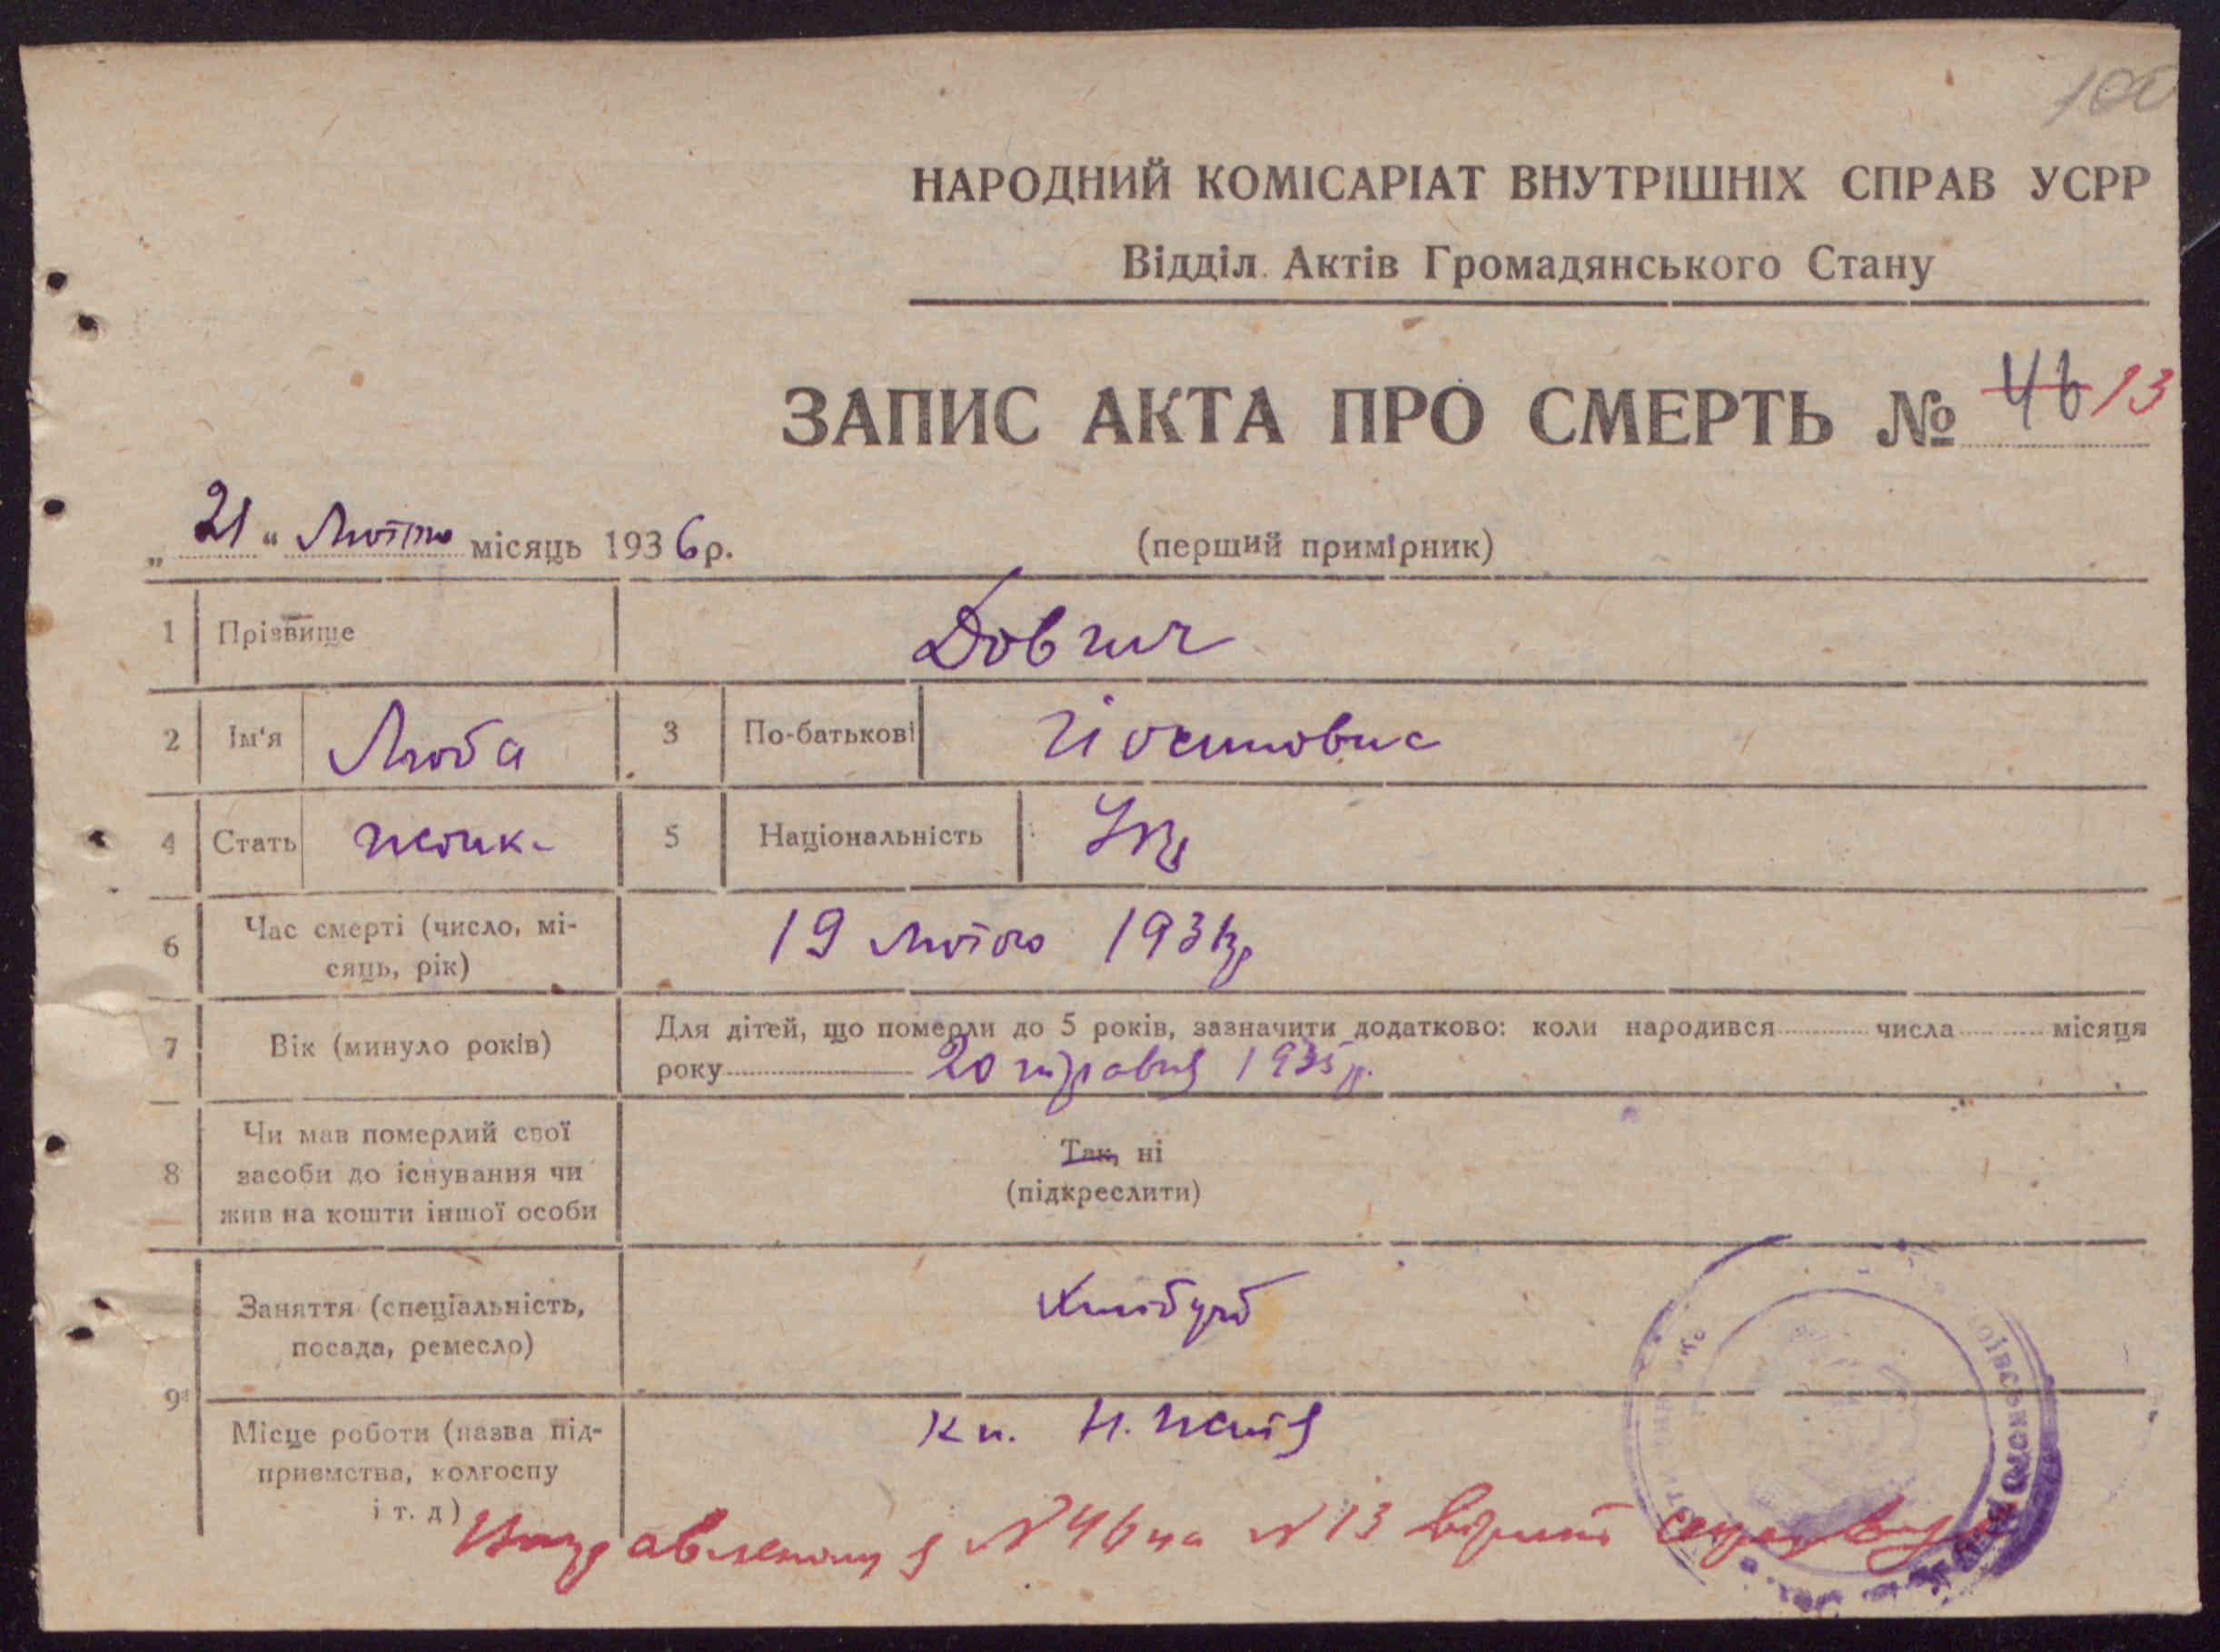 100
НАРОДНИЙ КОМІСАРІАТ ВНУТРІШНІХ СПРАВ УСРР
Відділ Актів Громадянського Стану
ЗАПИС АКТА ПРО СМЕРТЬ № 46 13
„ 21 “ Лютого місяць 1936 р.
(перший примірник)
1 Прізвище Довгич
2 Ім'я Люба 3 По-батькові Йосиповна
4 Стать жінк. 5 Національність Укр
6 Час смерті (число, місяць, рік) 19 лютого 1936р
7 Вік (минуло років) Для дітей, що померли до 5 років, зазначити додатково: коли народився числа місяця
року 20 травня 1935 р.
8 Чи мав померлий свої
засоби до існування чи
жив на кошти іншої особи
Так, ні
(підкреслити)
9 Заняття (спеціальність,
посада, ремесло)
Хлібороб
Місце роботи (назва під-
приємства, колгоспу
і т. д)
Кл. Н.
№ 46 на № 13